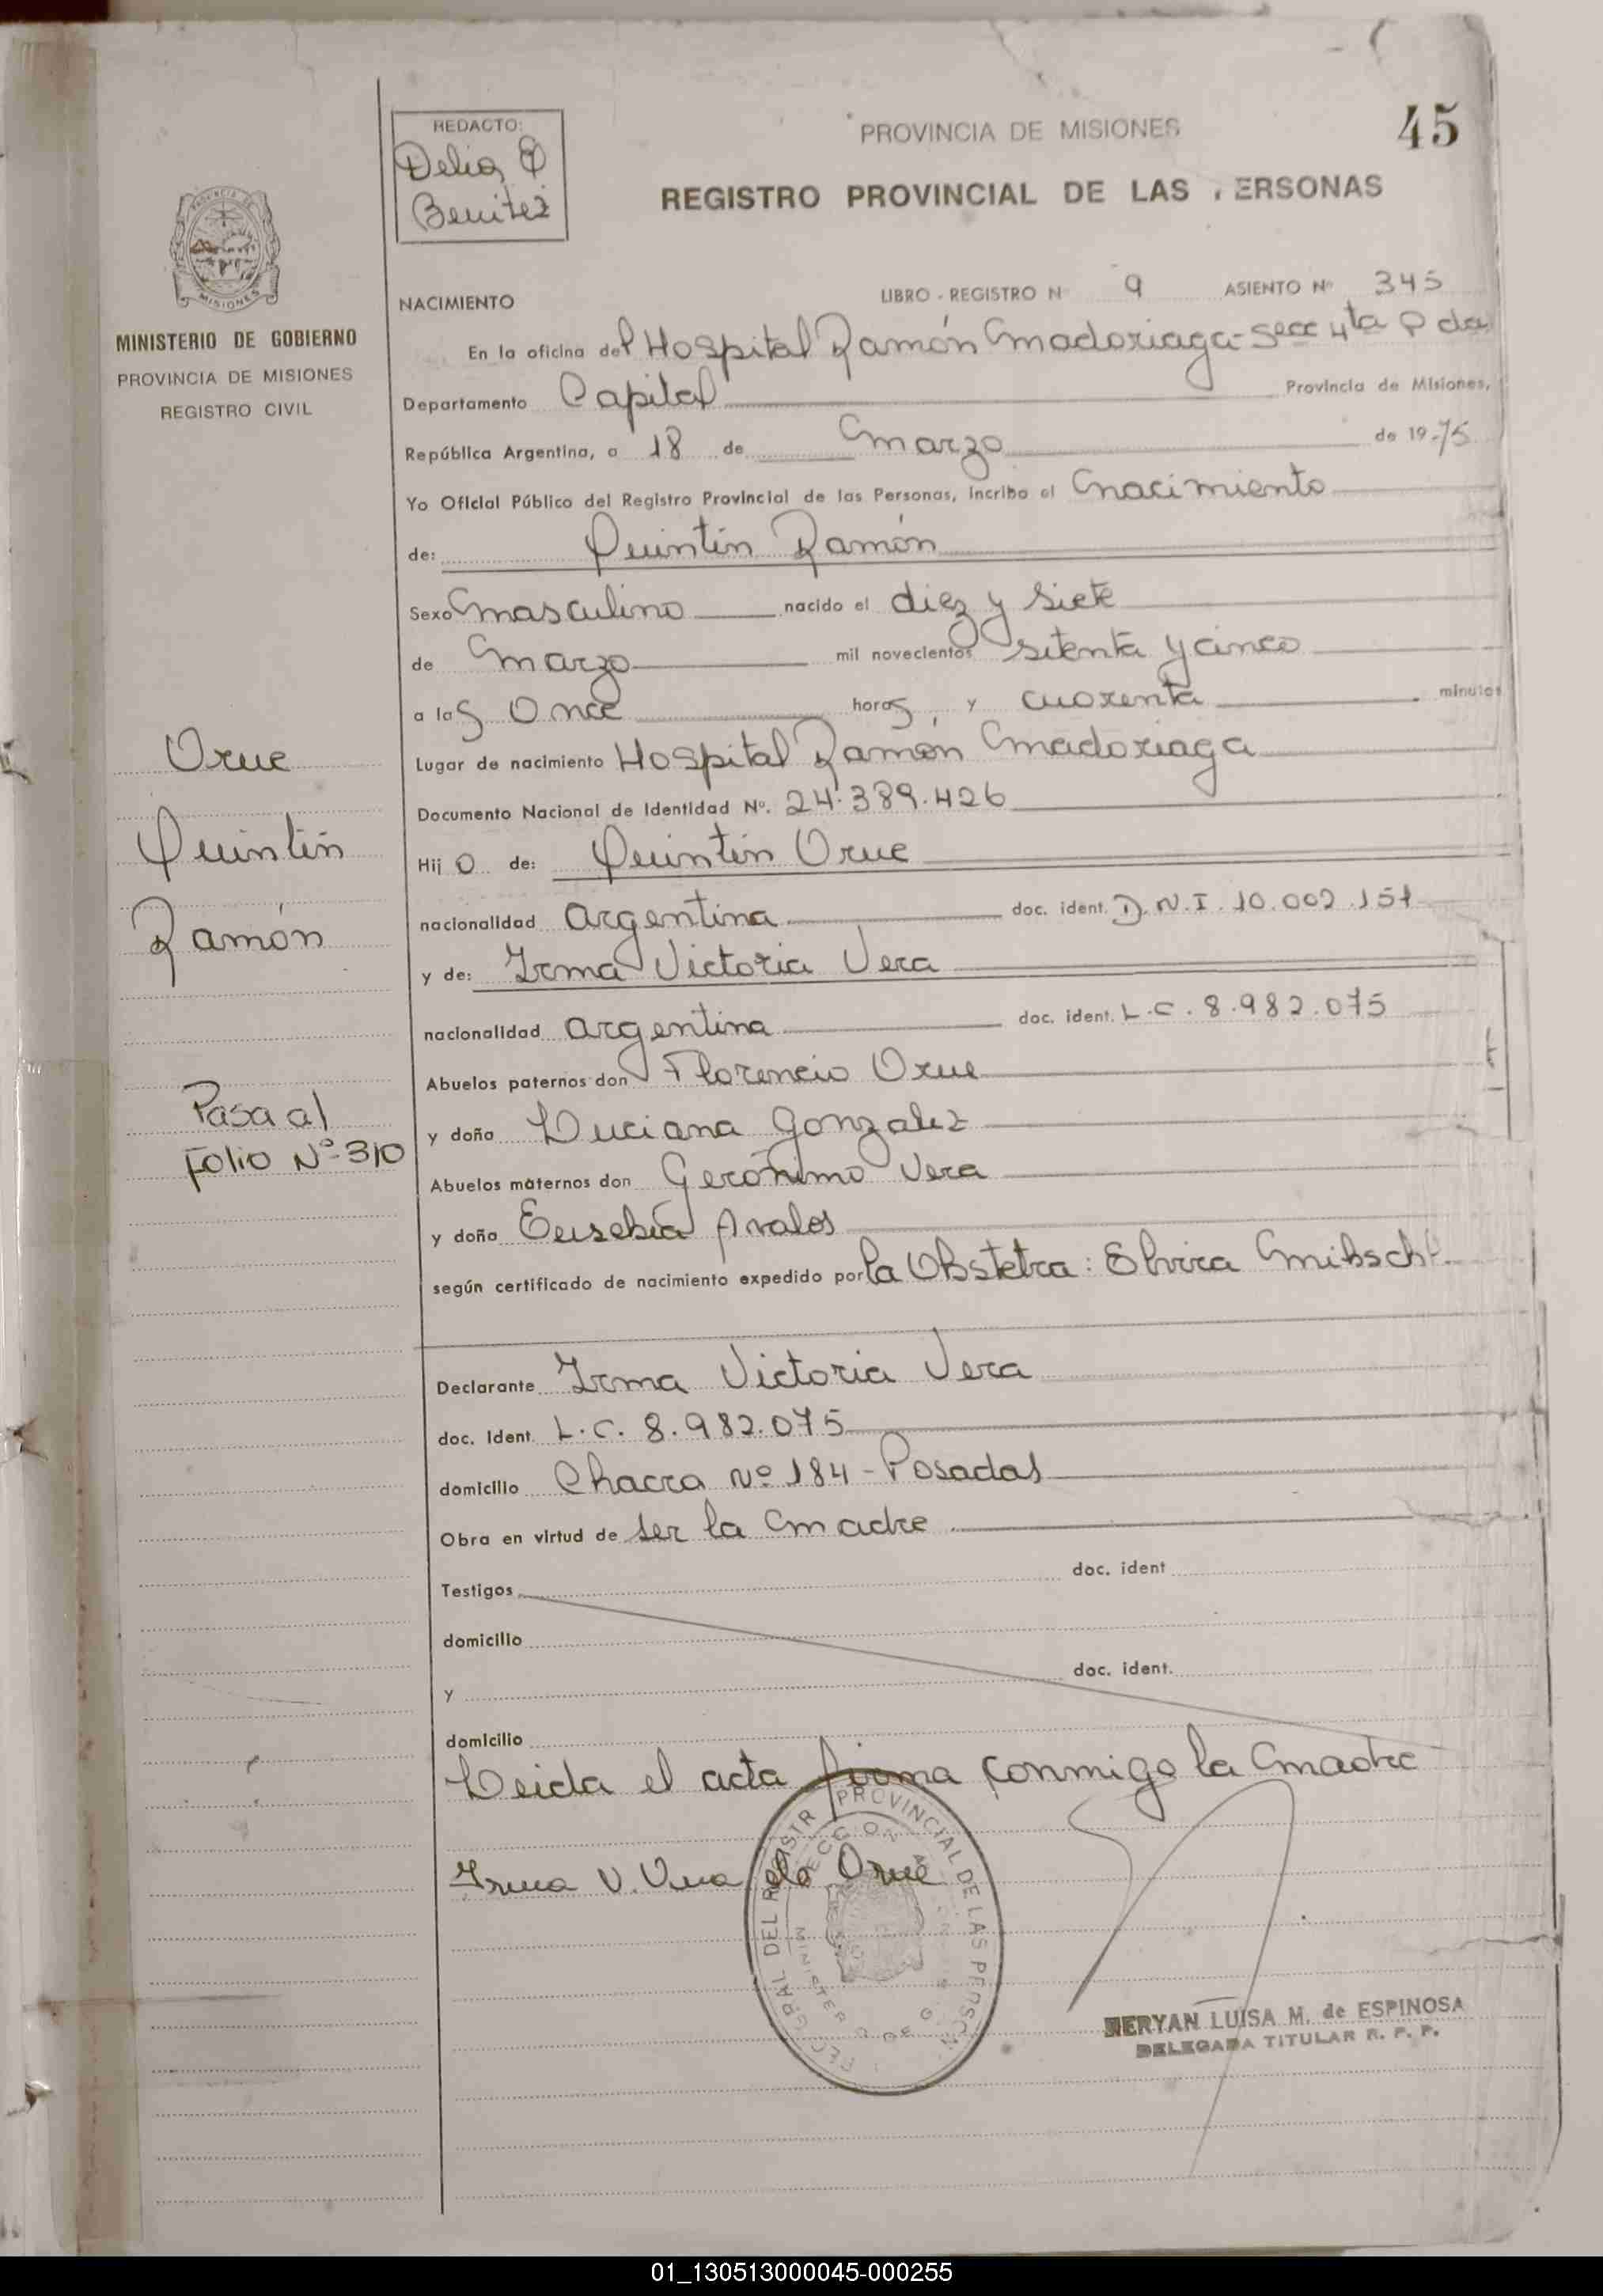 REDACTO:
Delia
Benitez
PROVINCIA DE MISIONES
45
REGISTRO PROVINCIAL DE LAS PERSONAS
MISIONES
MINISTERIO DE GOBIERNO
PROVINCIA DE MISIONES
REGISTRO CIVIL
NACIMIENTO
LIBRO - REGISTRO N° 9 ASIENTO N° 345
En la oficina del Hospital Ramón Madoriaga - Secc 4ta P da
Departamento Capital Provincia de Misiones,
República Argentina, a 18 de Marzo de 1975
Yo Oficial Público del Registro Provincial de las Personas, incribo el Nacimiento
de: Quintín Ramón
Sexo Masculino nacido el diez y siete
de Marzo mil novecientos setenta y cinco
a las Once horas, y cuarenta minutos
Lugar de nacimiento Hospital Ramón Madoriaga
Documento Nacional de Identidad N°. 24.389.426
Hijo de: Quintín Orue
nacionalidad argentina doc. ident. D.N.I. 10.002.151
y de: Irma Victoria Vera
nacionalidad argentina doc. ident. L.C. 8.982.075
Abuelos paternos don Florencio Orue
y doña Luciana Gonzalez
Abuelos maternos don Gerónimo Vera
y doña Eusebia Avalos
según certificado de nacimiento expedido por la Obstetra: Elvira
Declarante Irma Victoria Vera
doc. Ident. L.C. 8.982.075
domicilio Chacra N° 184 - Posadas
Obra en virtud de ser la Madre
Testigos doc. ident
domicilio
y doc. ident.
domicilio
Leida el acta firma conmigo la Madre
Irma V. Vera de Orue
Orue
Quintín
Ramón
Pasa al
Folio N° 310
PROVINCIAL DE LAS PERSON
MINISTERIO DE
NERYAN LUISA M. de ESPINOSA
DELEGADA TITULAR R. P. P.
01_130513000045-000255